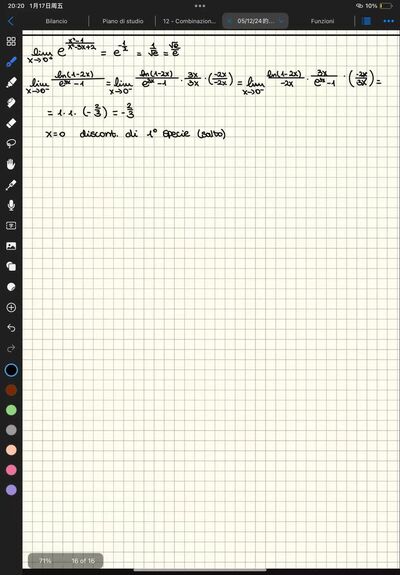 20:20 1月17日周五
10%
Bilancio
Piano di studio
12 - Combinazion...
05/12/24 的...
Funzioni
lim x→0⁺ e^((x²-1)/(x²-3x+2)) = e^(-1/2) = 1/√e = √e/e
lim x→0⁻ ln(1-2x)/(e^(3x)-1) = lim x→0⁻ ln(1-2x)/(e^(3x)-1) · 3x/3x · (-2x/-2x) = lim x→0⁻ ln(1-2x)/-2x · 3x/(e^(3x)-1) · (-2x/3x) =
= 1·1·(-2/3) = -2/3
x=0 discont. di 1° specie (salto)
71% 16 of 16